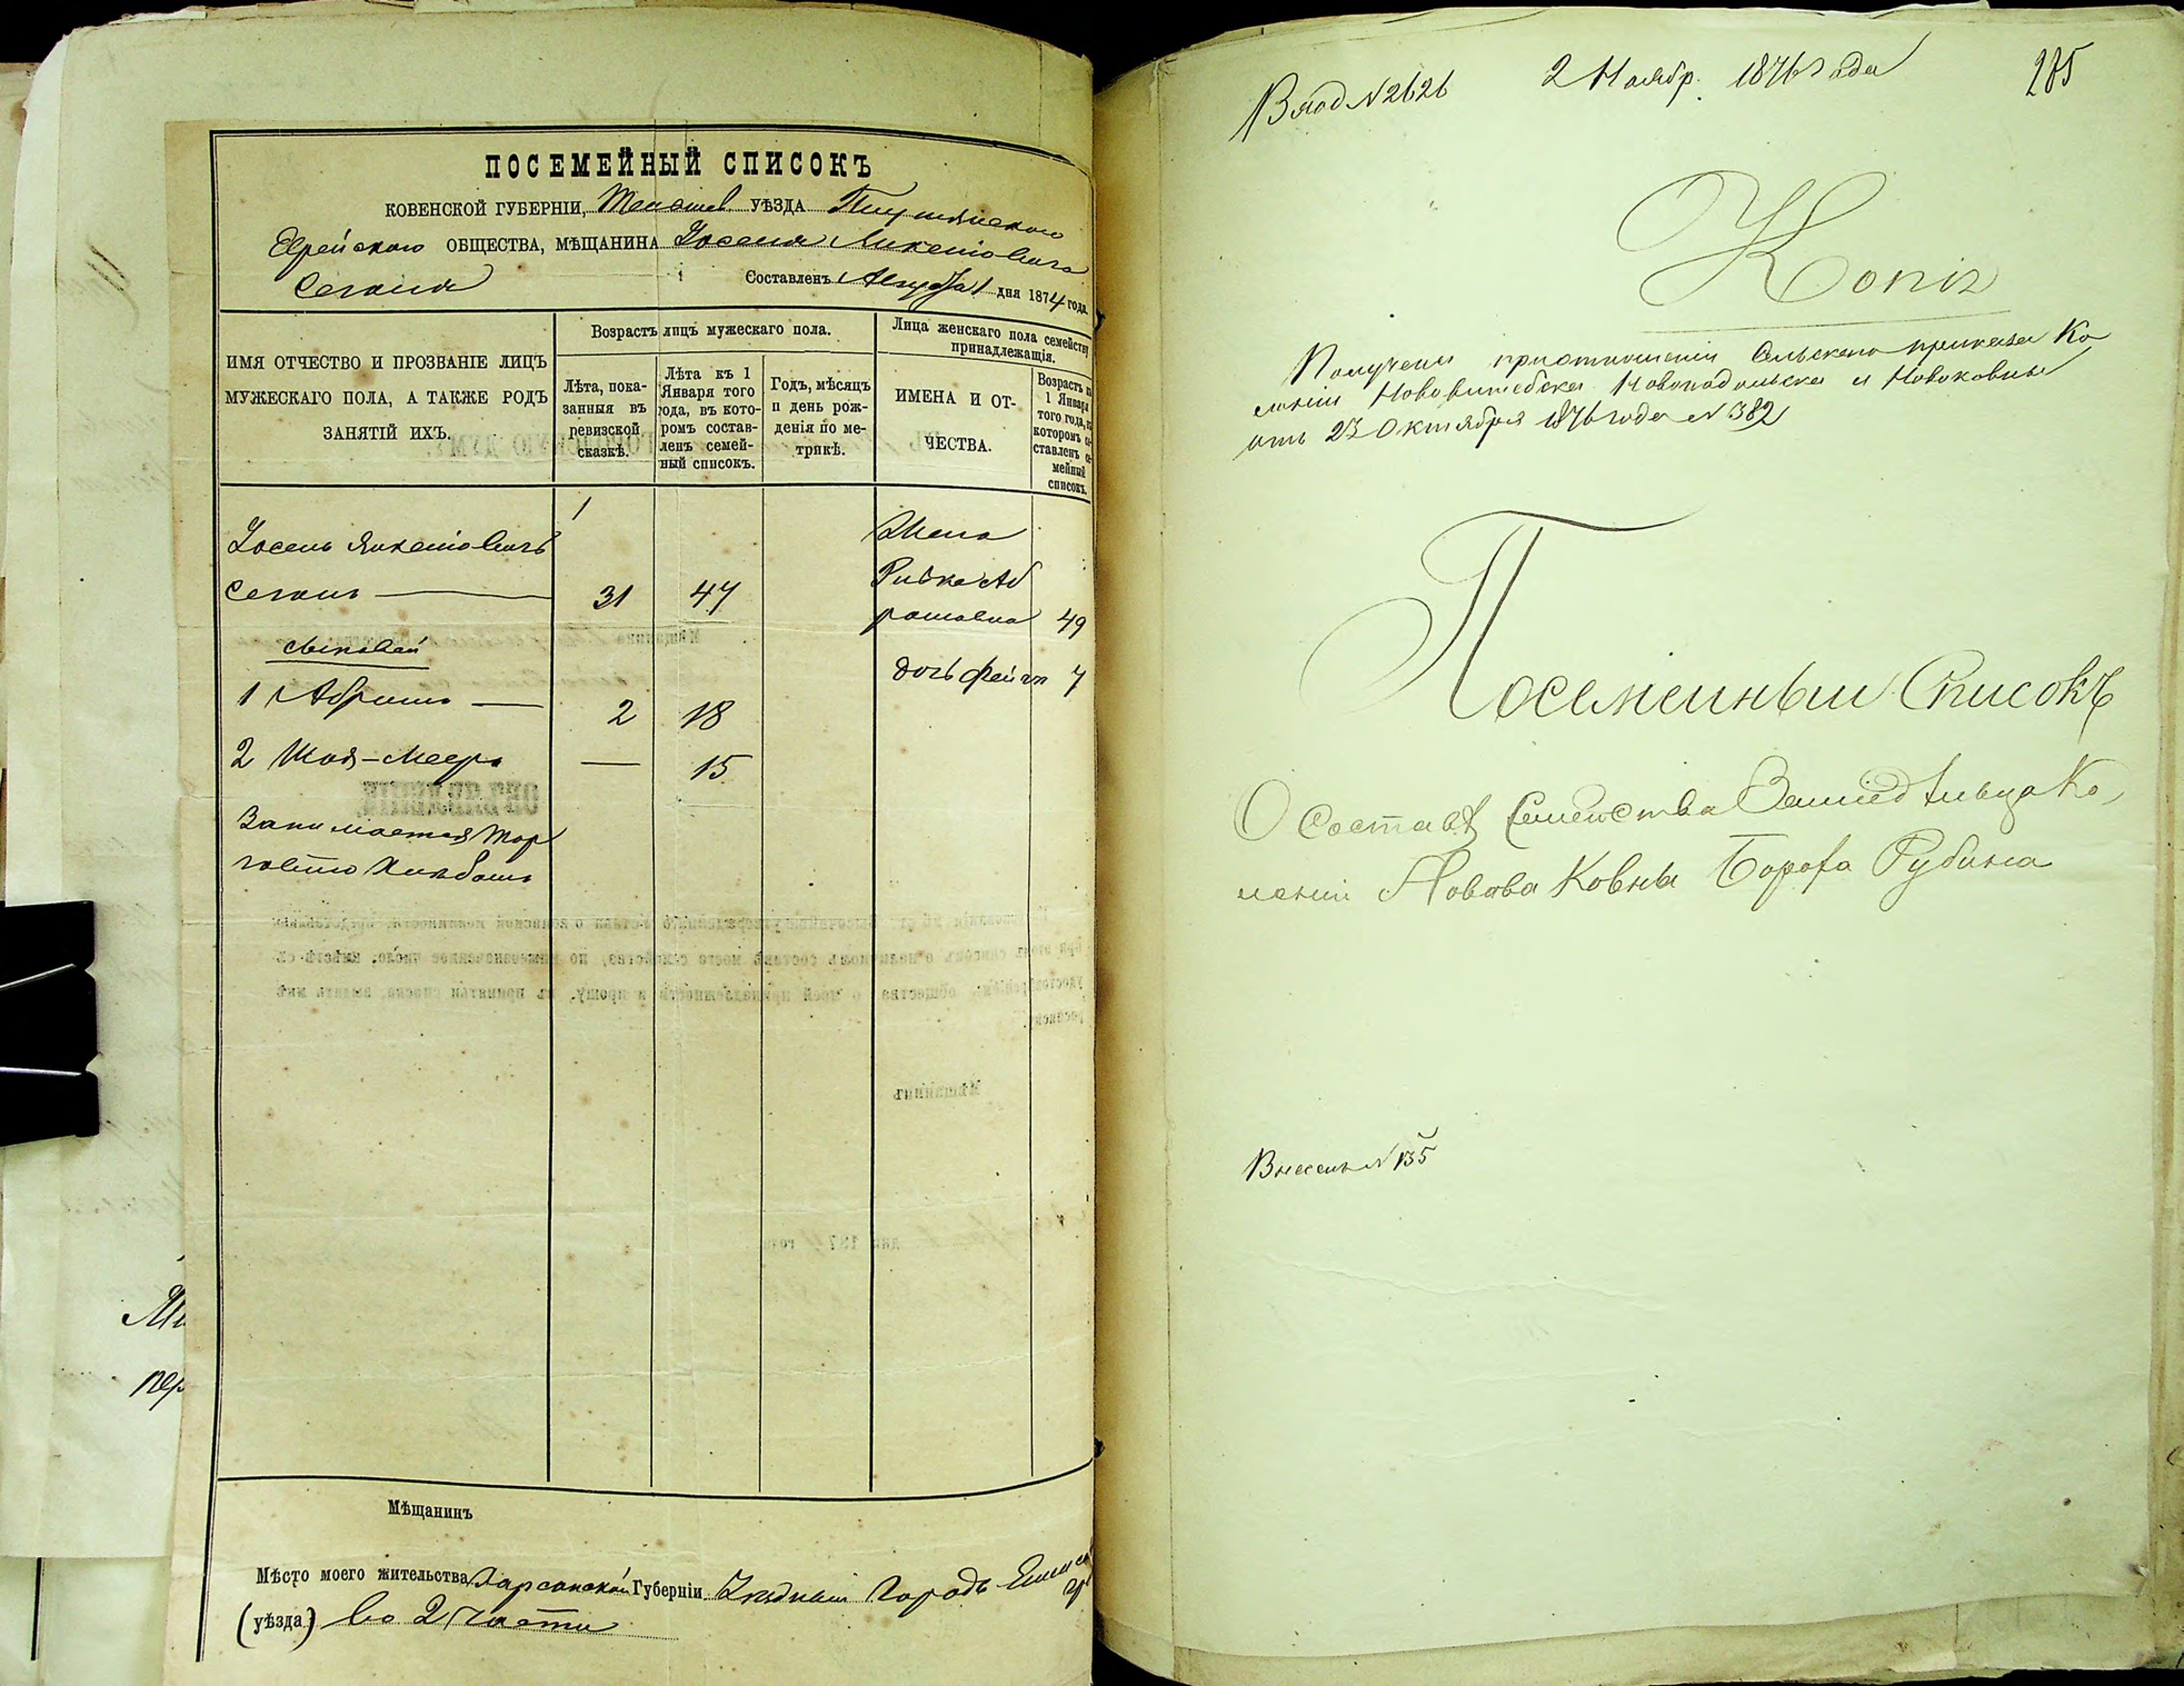 ПОСЕМЕЙНЫЙ СПИСОКЪ
КОВЕНСКОЙ ГУБЕРНІИ, УѢЗДА
Еврейскаго ОБЩЕСТВА, МѢЩАНИНА
Составленъ Августа 1 дня 1874 года.
ИМЯ ОТЧЕСТВО И ПРОЗВАНІЕ ЛИЦЪ
МУЖЕСКАГО ПОЛА, А ТАКЖЕ РОДЪ
ЗАНЯТІЙ ИХЪ.
Возрастъ лицъ мужескаго пола.
Лѣта, пока-
занныя въ
ревизской
сказкѣ.
Лѣта къ 1
Января того
года, въ кото-
ромъ состав-
ленъ семей-
ный списокъ.
Годъ, мѣсяцъ
и день рож-
денія по ме-
трикѣ.
Лица женскаго пола семейству
принадлежащія.
ИМЕНА И ОТ-
ЧЕСТВА.
Возрастъ къ
1 Января
того года, въ
которомъ со-
ставленъ се-
мейный
списокъ.
1
Жена
Ривка Аб
рамовна 49
31 47
сыновья
дочь Фейга 7
1 Абрамъ — 2 18
2 Шая-Мееръ — 15
Занимается тор
говлею хлѣбомъ
Мѣщанинъ
Мѣсто моего жительства Херсонской Губерніи Уѣздный Городъ
(уѣзда) во 2 части
Вход N 2626 2 Ноябр. 1876 года 285
Копія
Получены при отношеніи Сельскаго приказа Ко
лоніи Нововитебска Новоподольска и Новоковны
отъ 23 Октября 1876 года N 382
Посемейный Списокъ
О Составѣ Семейства Земледѣльца Ко,
лоніи Новова Ковны Бороха Рубина
Внесенъ N 135